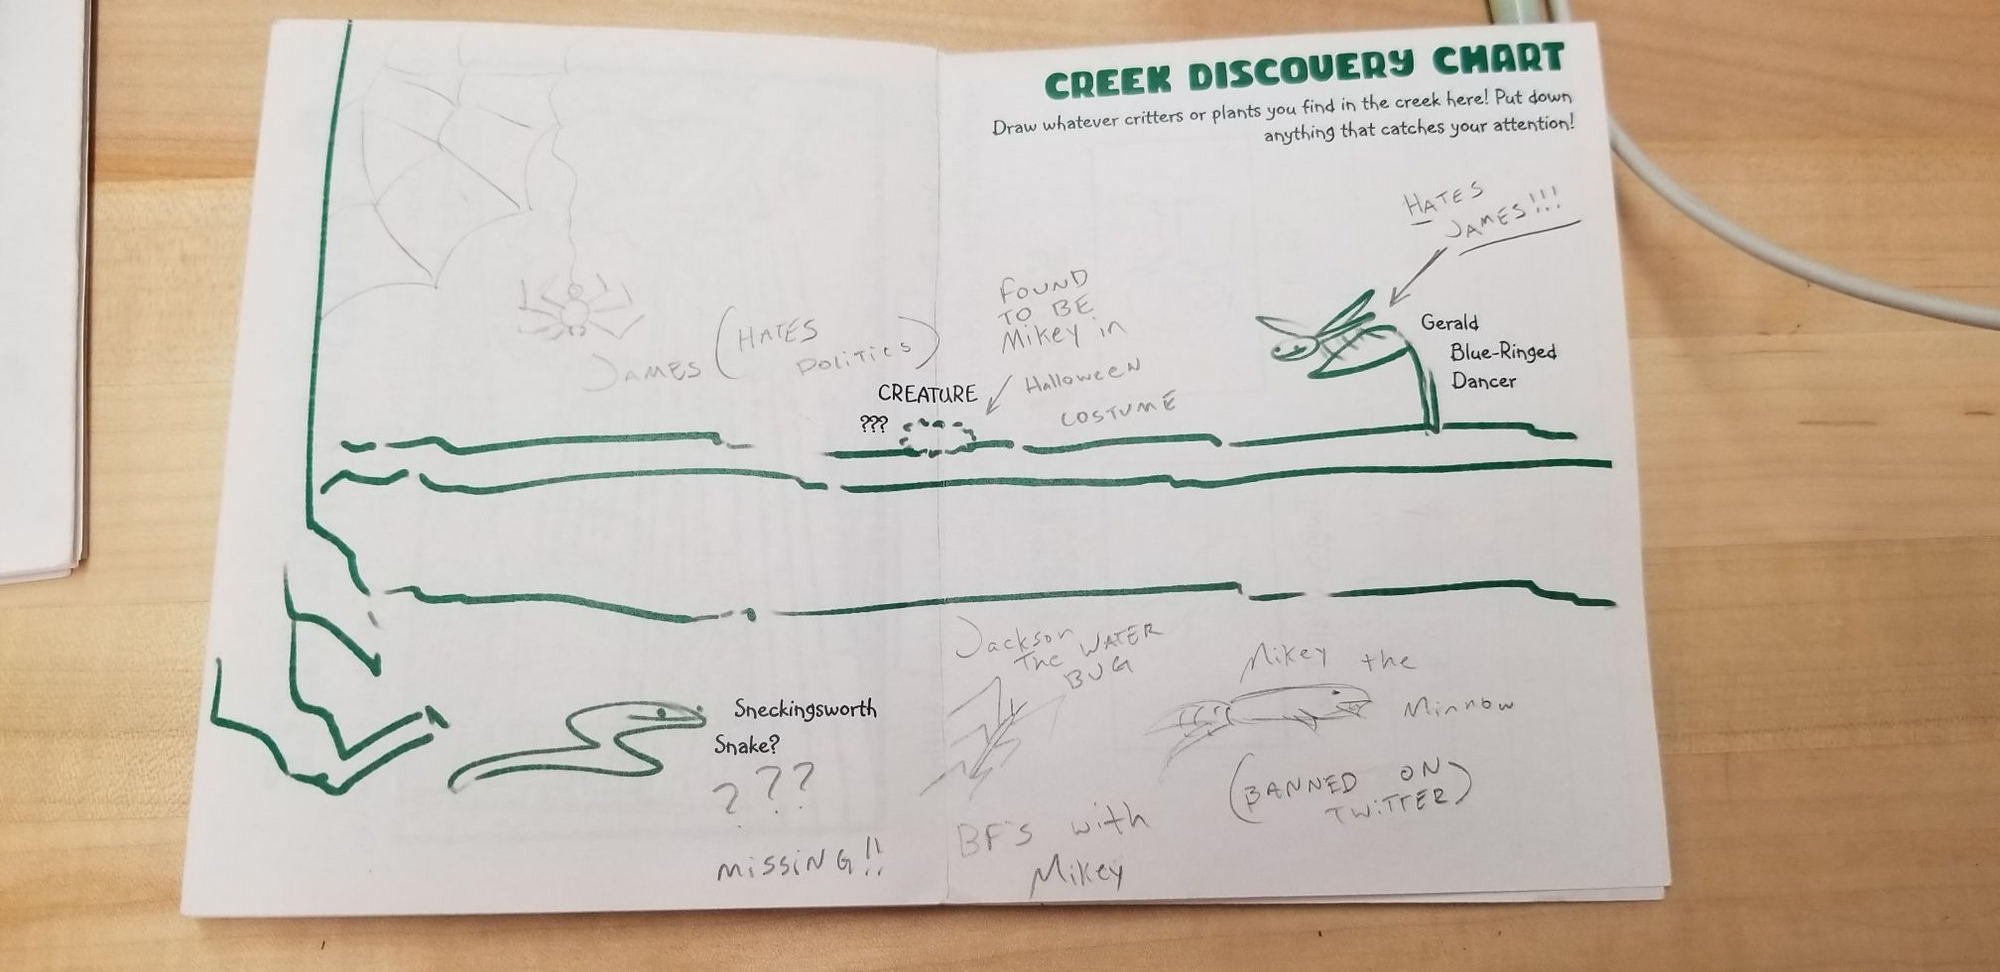 CREEK DISCOVERY CHART
Draw whatever critters or plants you find in the creek here! Put down
anything that catches your attention!
HATES
JAMES!!!
Gerald
Blue-Ringed
Dancer
FOUND
TO BE
Mikey in
Halloween
COSTUME
JAMES (HATES
POLITICS)
CREATURE
???
Sneckingsworth
Snake?
???
MISSING!!
Jackson
The WATER
BUG
BF'S with
Mikey
Mikey the
Minnow
(BANNED ON
TWITTER)